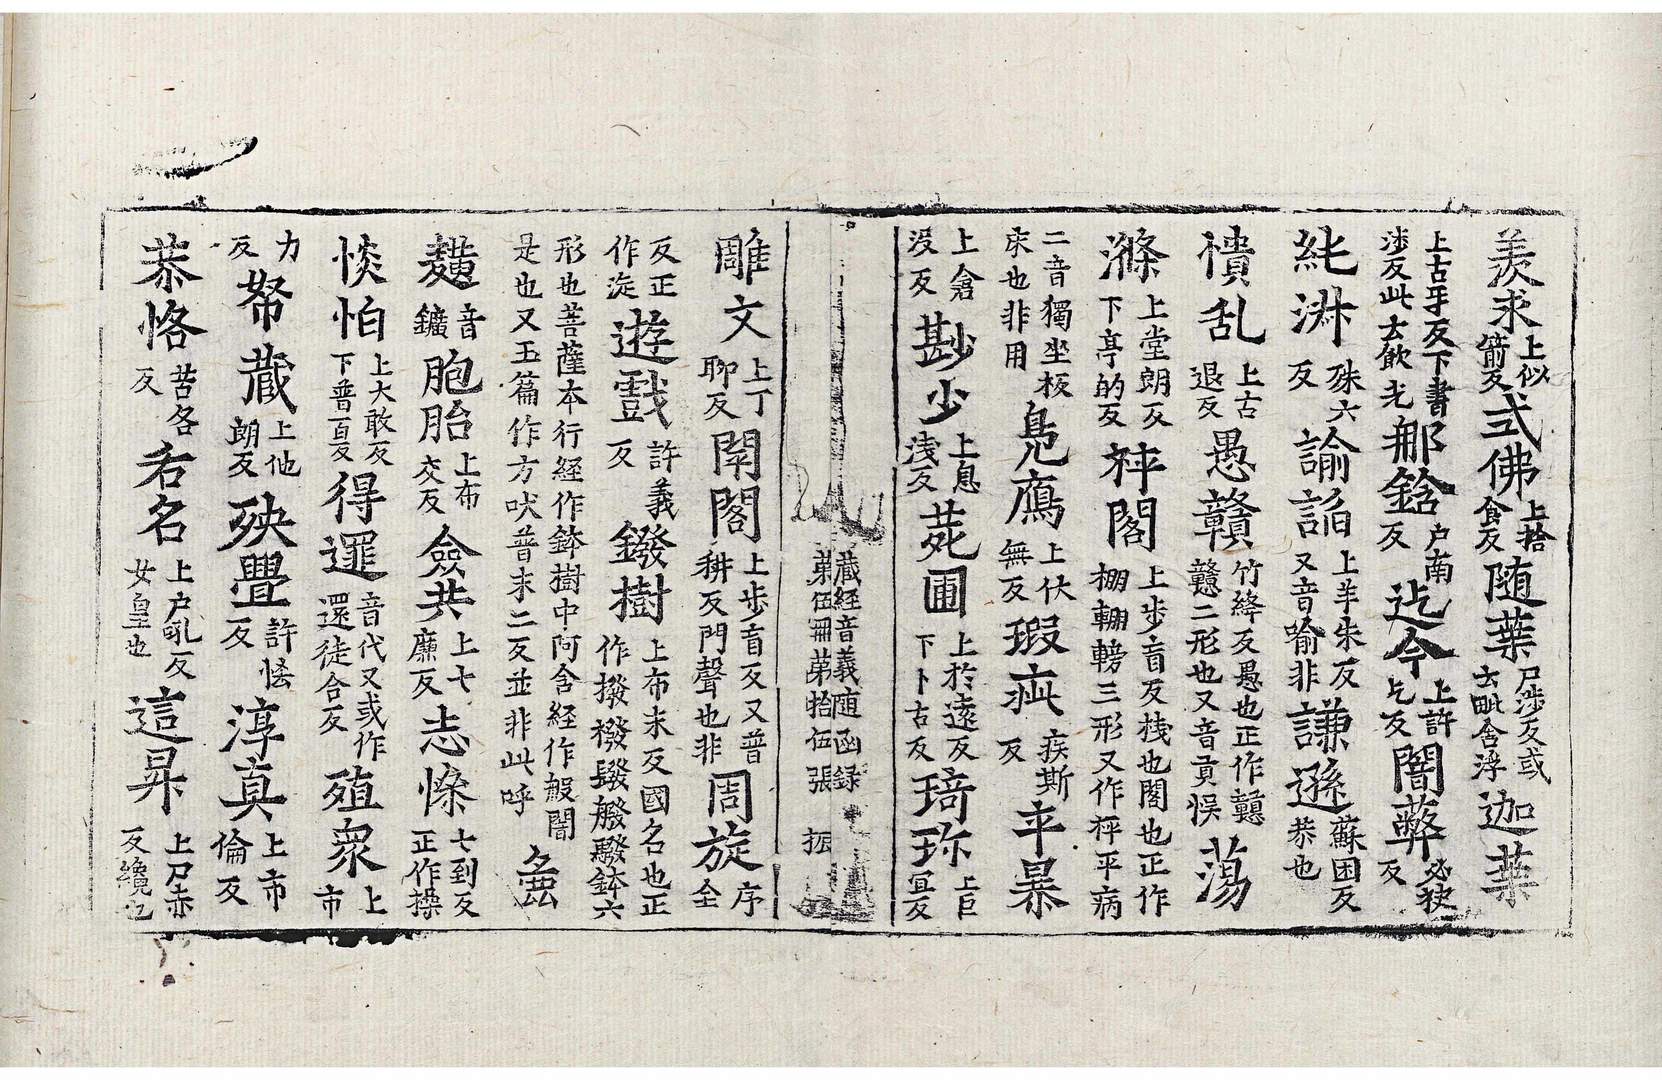 羨求上似箭反式佛上拾食反随葉尸涉反或去毗舍浮迦葉
上古牙反下書涉反此去飲光那鋡户南反迄今上許乞反闇蔽必袂反
純淋殊六反諭諂上羊朱反又音喻非謙遜蘇困反恭也
憒乱上古退反愚贛竹絳反愚也正作戇戇二形也又音貢悮蕩
滌上堂朗反下亭的反枰閣上步盲反棧也閣也正作棚輣輬三形又作枰平病
二音獨坐板床也非用鳧鴈上伏無反瑕疵疾斯反卒暴
上倉没反尠少上息浅反苑圃上於遠反下卜古反琦珎上巨冝反
藏經音義随函録
第伍冊第拾伍張 振
雕文上丁聊反閛閣上步盲反又普耕反門聲也非周旋序全
反正作淀遊戲許義反鏺樹上布末反國名也正作撥橃髮艐驋鉢六
形也菩薩本行経作鉢樹中阿含経作般闍是也又玉篇作方吠普末二反並非此呼麁
䵃音鑛胞胎上布交反僉共上七廉反志懆七到反正作操
惔怕上大敢反下普百反得逻音代又或作還徒合反殖衆上市
力反帑藏上他朗反殃舋許悋反淳真上市倫反
恭恪苦各反吞名上户吼反女皇也這昇上尸赤反纔也